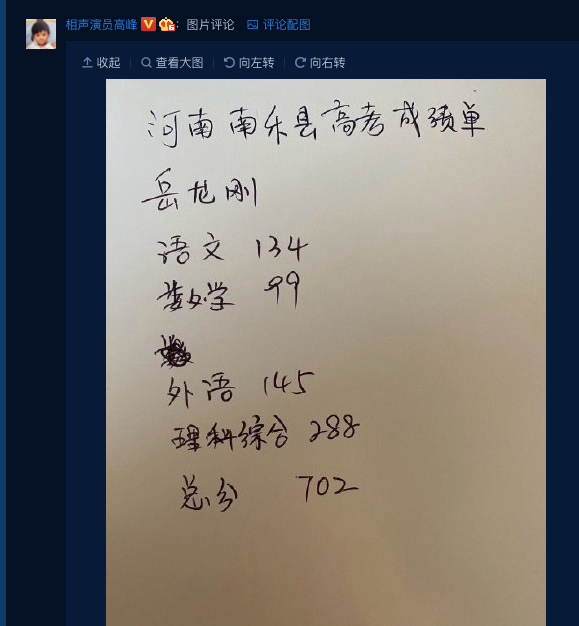 相声演员高峰：图片评论 评论配图
收起 查看大图 向左转 向右转
河南南乐县高考成绩单
岳龙刚
语文 134
数学 99
外语 145
理科综合 288
总分 702